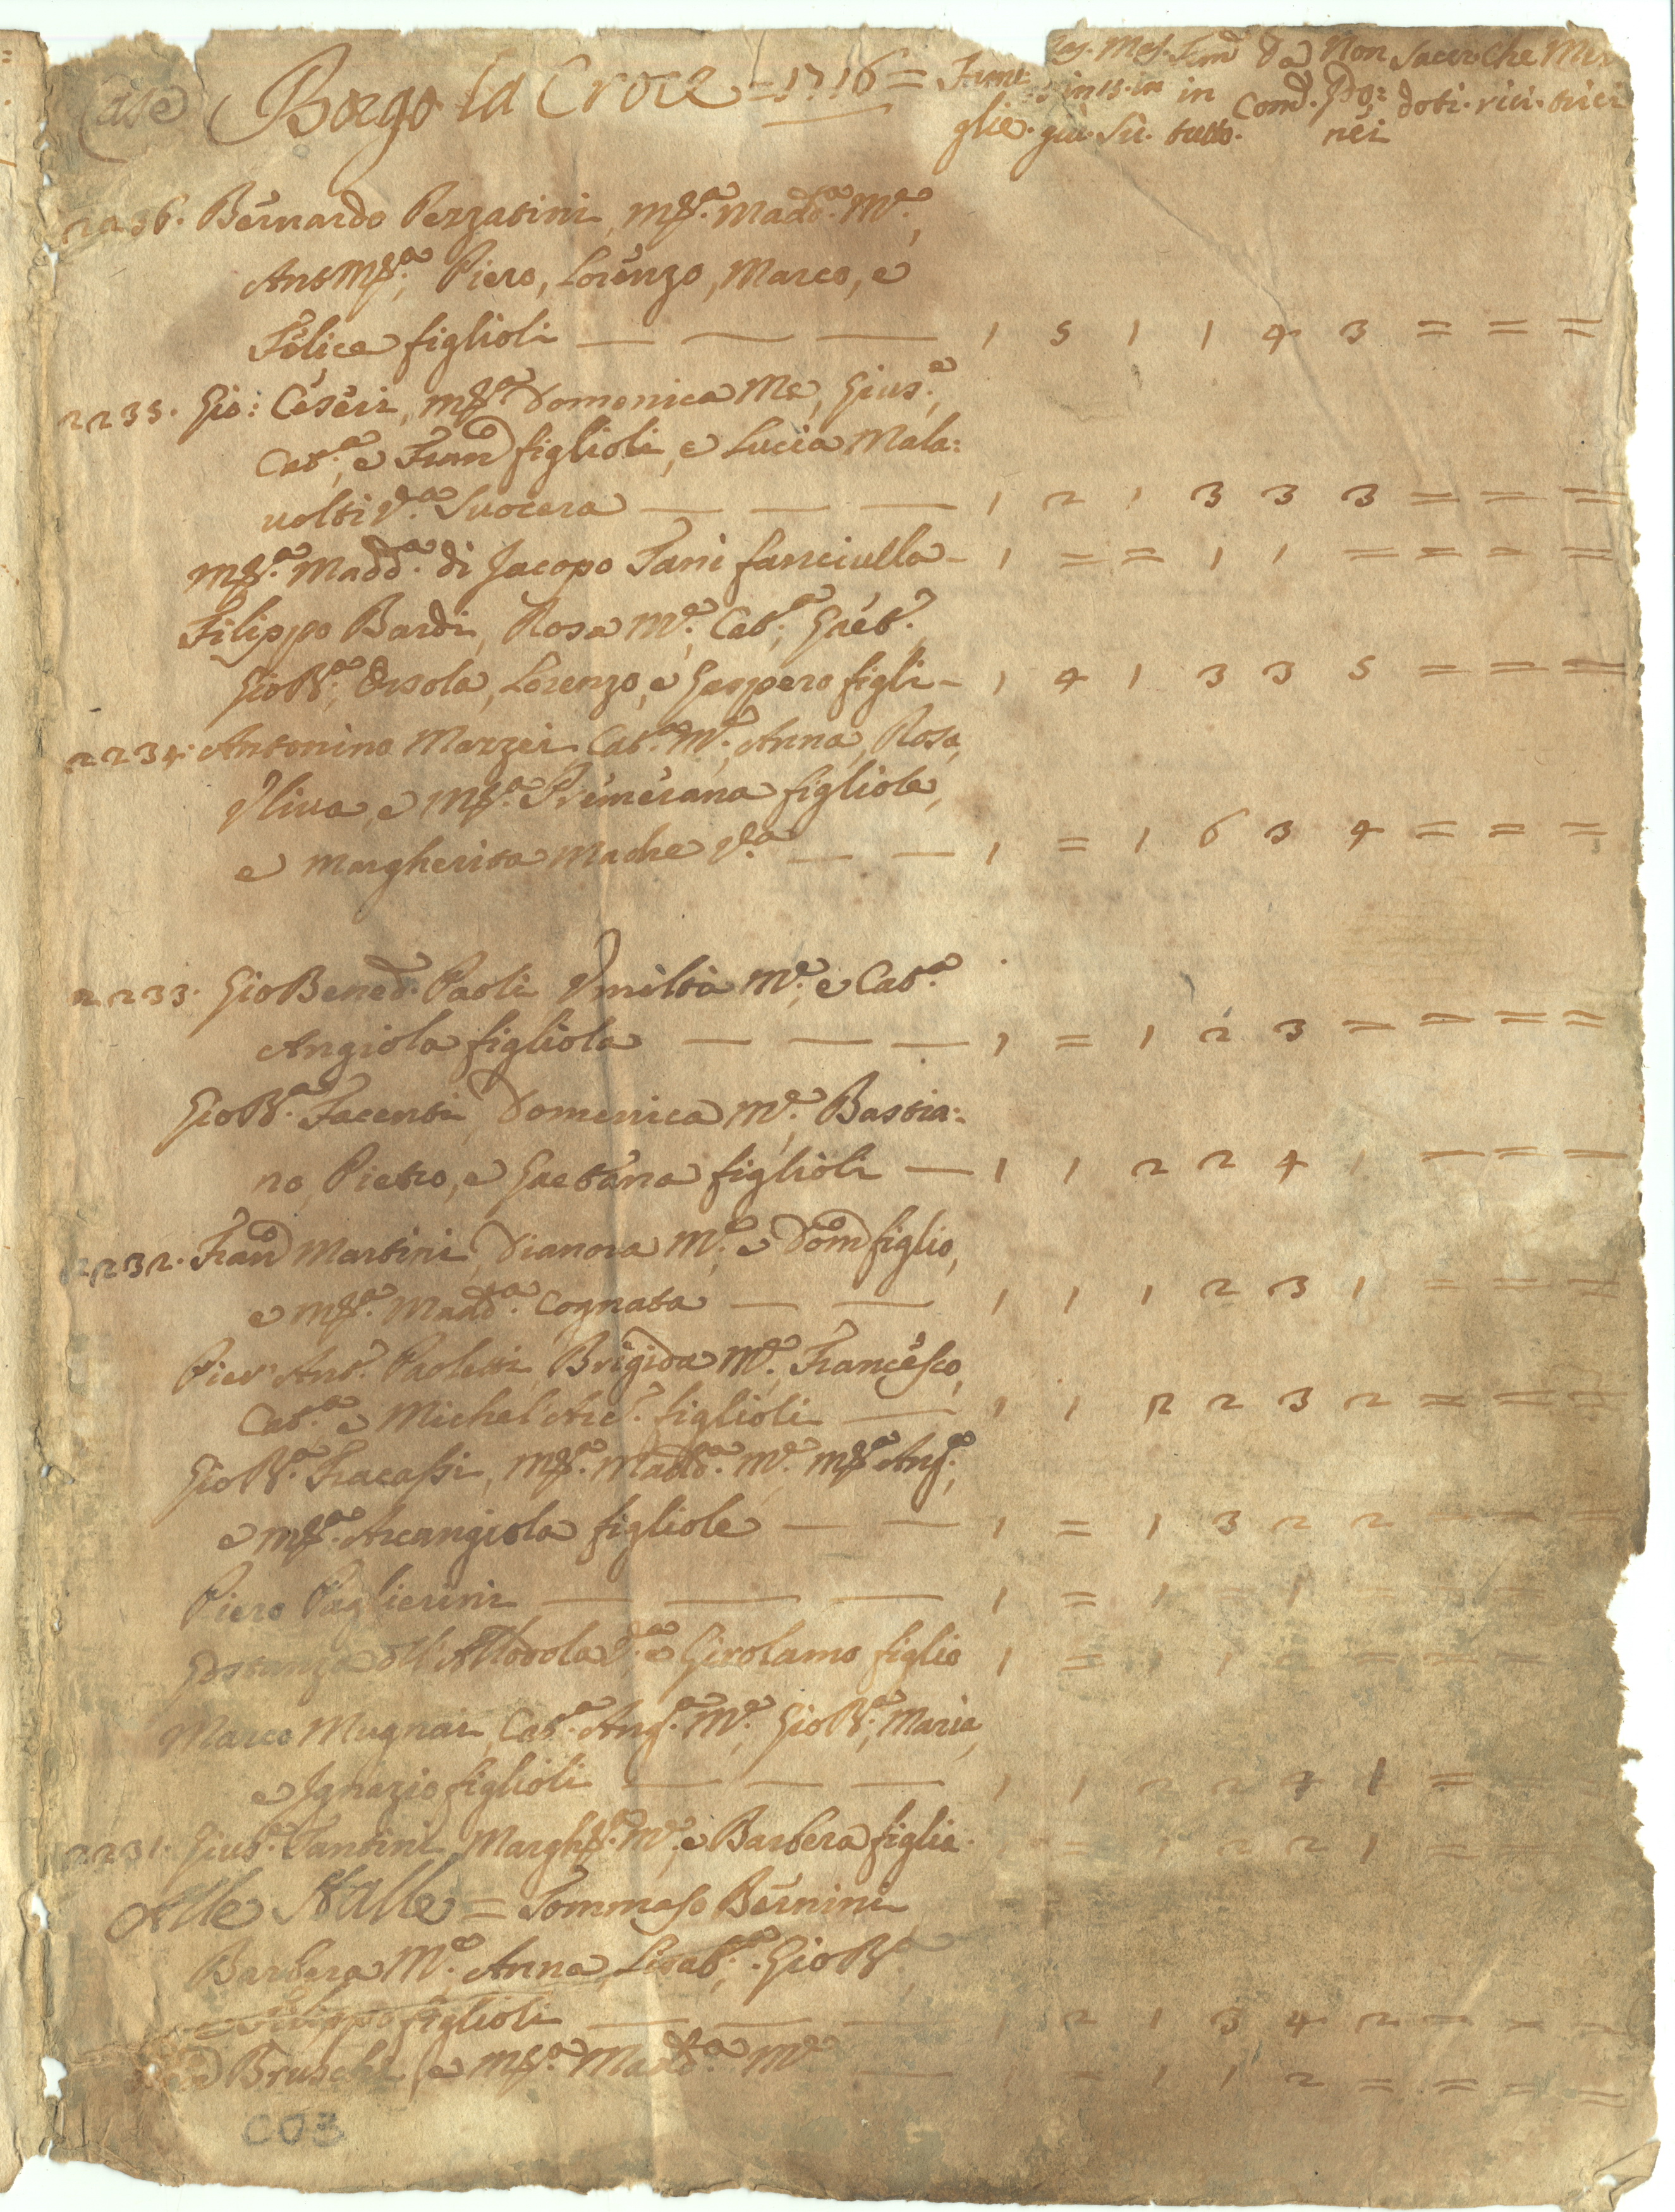 Case Borgo la Croce = 1716 = Fami Mas. Mas. Fem Da Non Sacer Che
in is. in in Com. Po:
glie. giù. Sù. tutto. nei doti. rici.
2236. Bernardo Pezzatini, Mª. Madª. Mᵉ.,
Ant Mª., Piero, Lorenzo, Marco, e
Felice figlioli — — — 1 5 1 1 4 3 = = =
2235. Gio: Ceseri, Mª Domenica Me, Giusᵉ.,
Catª., e Franᶜᵒ figlioli, e Lucia Mala:
volti Vª. Suocera — — — 1 2 1 3 3 3 = = =
Mª. Maddª. di Jacopo Fani fanciulla - 1 = = 1 1 = = = =
Filippo Bardi, Rosa Mᵉ., Catª., Gaetº.,
Gio Bª., Orsola, Lorenzo, e Gaspero figli - 1 4 1 3 3 5 = = =
2234. Antonino Mazzei, Catª. Mᵉ., Anna, Rosa,
Uliva, e Mª. Primerana figliole,
e Margherita Madre Vª — — 1 = 1 6 3 4 = = =
2233. Gio Bened. Paoli Umiltà Mᵉ., e Catª
Angiola figliola — — — 1 = 1 2 3 = = = =
Gio Bª. Facenti, Domenica Mᵉ. Bastia:
no, Pietro, e Gaetana figlioli — 1 1 2 2 4 1 = = =
2232. Franᶜᵒ Martini, Dianora Mᵉ., e Domᶜᵒ figlio,
e Mª. Maddª. Cognata — — 1 1 1 2 3 1 = = =
Pier Antº. Paoletti, Brigida Mᵉ., Francesco,
Catª. e Michel' Arcº. figlioli — 1 1 2 2 3 2 = = =
Gio Bª. Fracassi, Mª. Maddª. Mᵉ. Mª Angª.,
e Mª. Arcangiola figliole — — 1 = 1 3 2 2 = = =
Piero Paglierini — — — 1 = 1 = 1
Gostanza dell' Allodola Vª. e Girolamo figlio 1 = 1 1
Marco Mugnai, Catª. Angª. Mᵉ., Gio Bª., Maria,
e Ignazio figlioli — — — 1 1 2 2 4 1 =
2231. Giusᵉ. Tantini, Marghª. Mᵉ., e Barbera figlia. = 1 2 2 1 = =
Alle Stalle = Tommaso Bernini
Barbera Mᵉ. Anna, Lisabª., Gio Bª
Filippo figlioli — — — 1 2 1 3 4 2 = = =
Bruschi, e Mª. Maddª. Mᵉ — 1 = 1 1 2 = = = =
C03